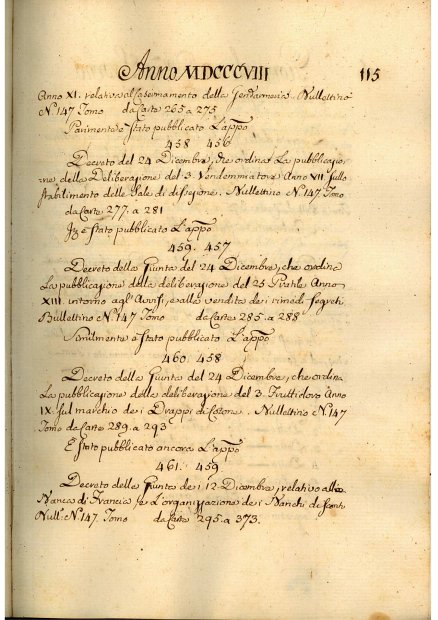 Anno MDCCCVIII 115
Anno XI. relativo al Casernamento della Gendarmeria. Bullettino
N.° 147 Tomo da Carte 265 a 275
Parimente è stato pubblicato L'appo
458 456
Decreto del 24 Dicembre, che ordina La pubblicazio=
ne della Deliberazione del 3. Vendemmiatore Anno VII sullo
stabilimento delle Sale di dissezione. Bullettino N.° 147 Tomo
da Carte 277. a 281
è stato pubblicato L'appo
459. 457
Decreto della Giunta del 24 Dicembre, che ordina
La pubblicazione della deliberazione del 25 Pratile Anno
XIII intorno agl' Avvisi, e alle vendita dei rimedi segreti
Bullettino N.° 147 Tomo da Carte 285. a 288
Similmente è stato pubblicato L'appo
460. 458
Decreto della Giunta del 24 Dicembre, che ordina
La pubblicazione della deliberazione del 3. Fruttidoro Anno
IX. sul marchio dei Drappi di Cotone. Bullettino N.° 147
Tomo da Carte 289. a 293
E stato pubblicato ancora L'appo
461. 459
Decreto della Giunta dei 12 Dicembre, relativo alla
Banca di Francia, e L'organizzazione dei Banchi di
Bull.° N.° 147. Tomo da Carte 295. a 373.